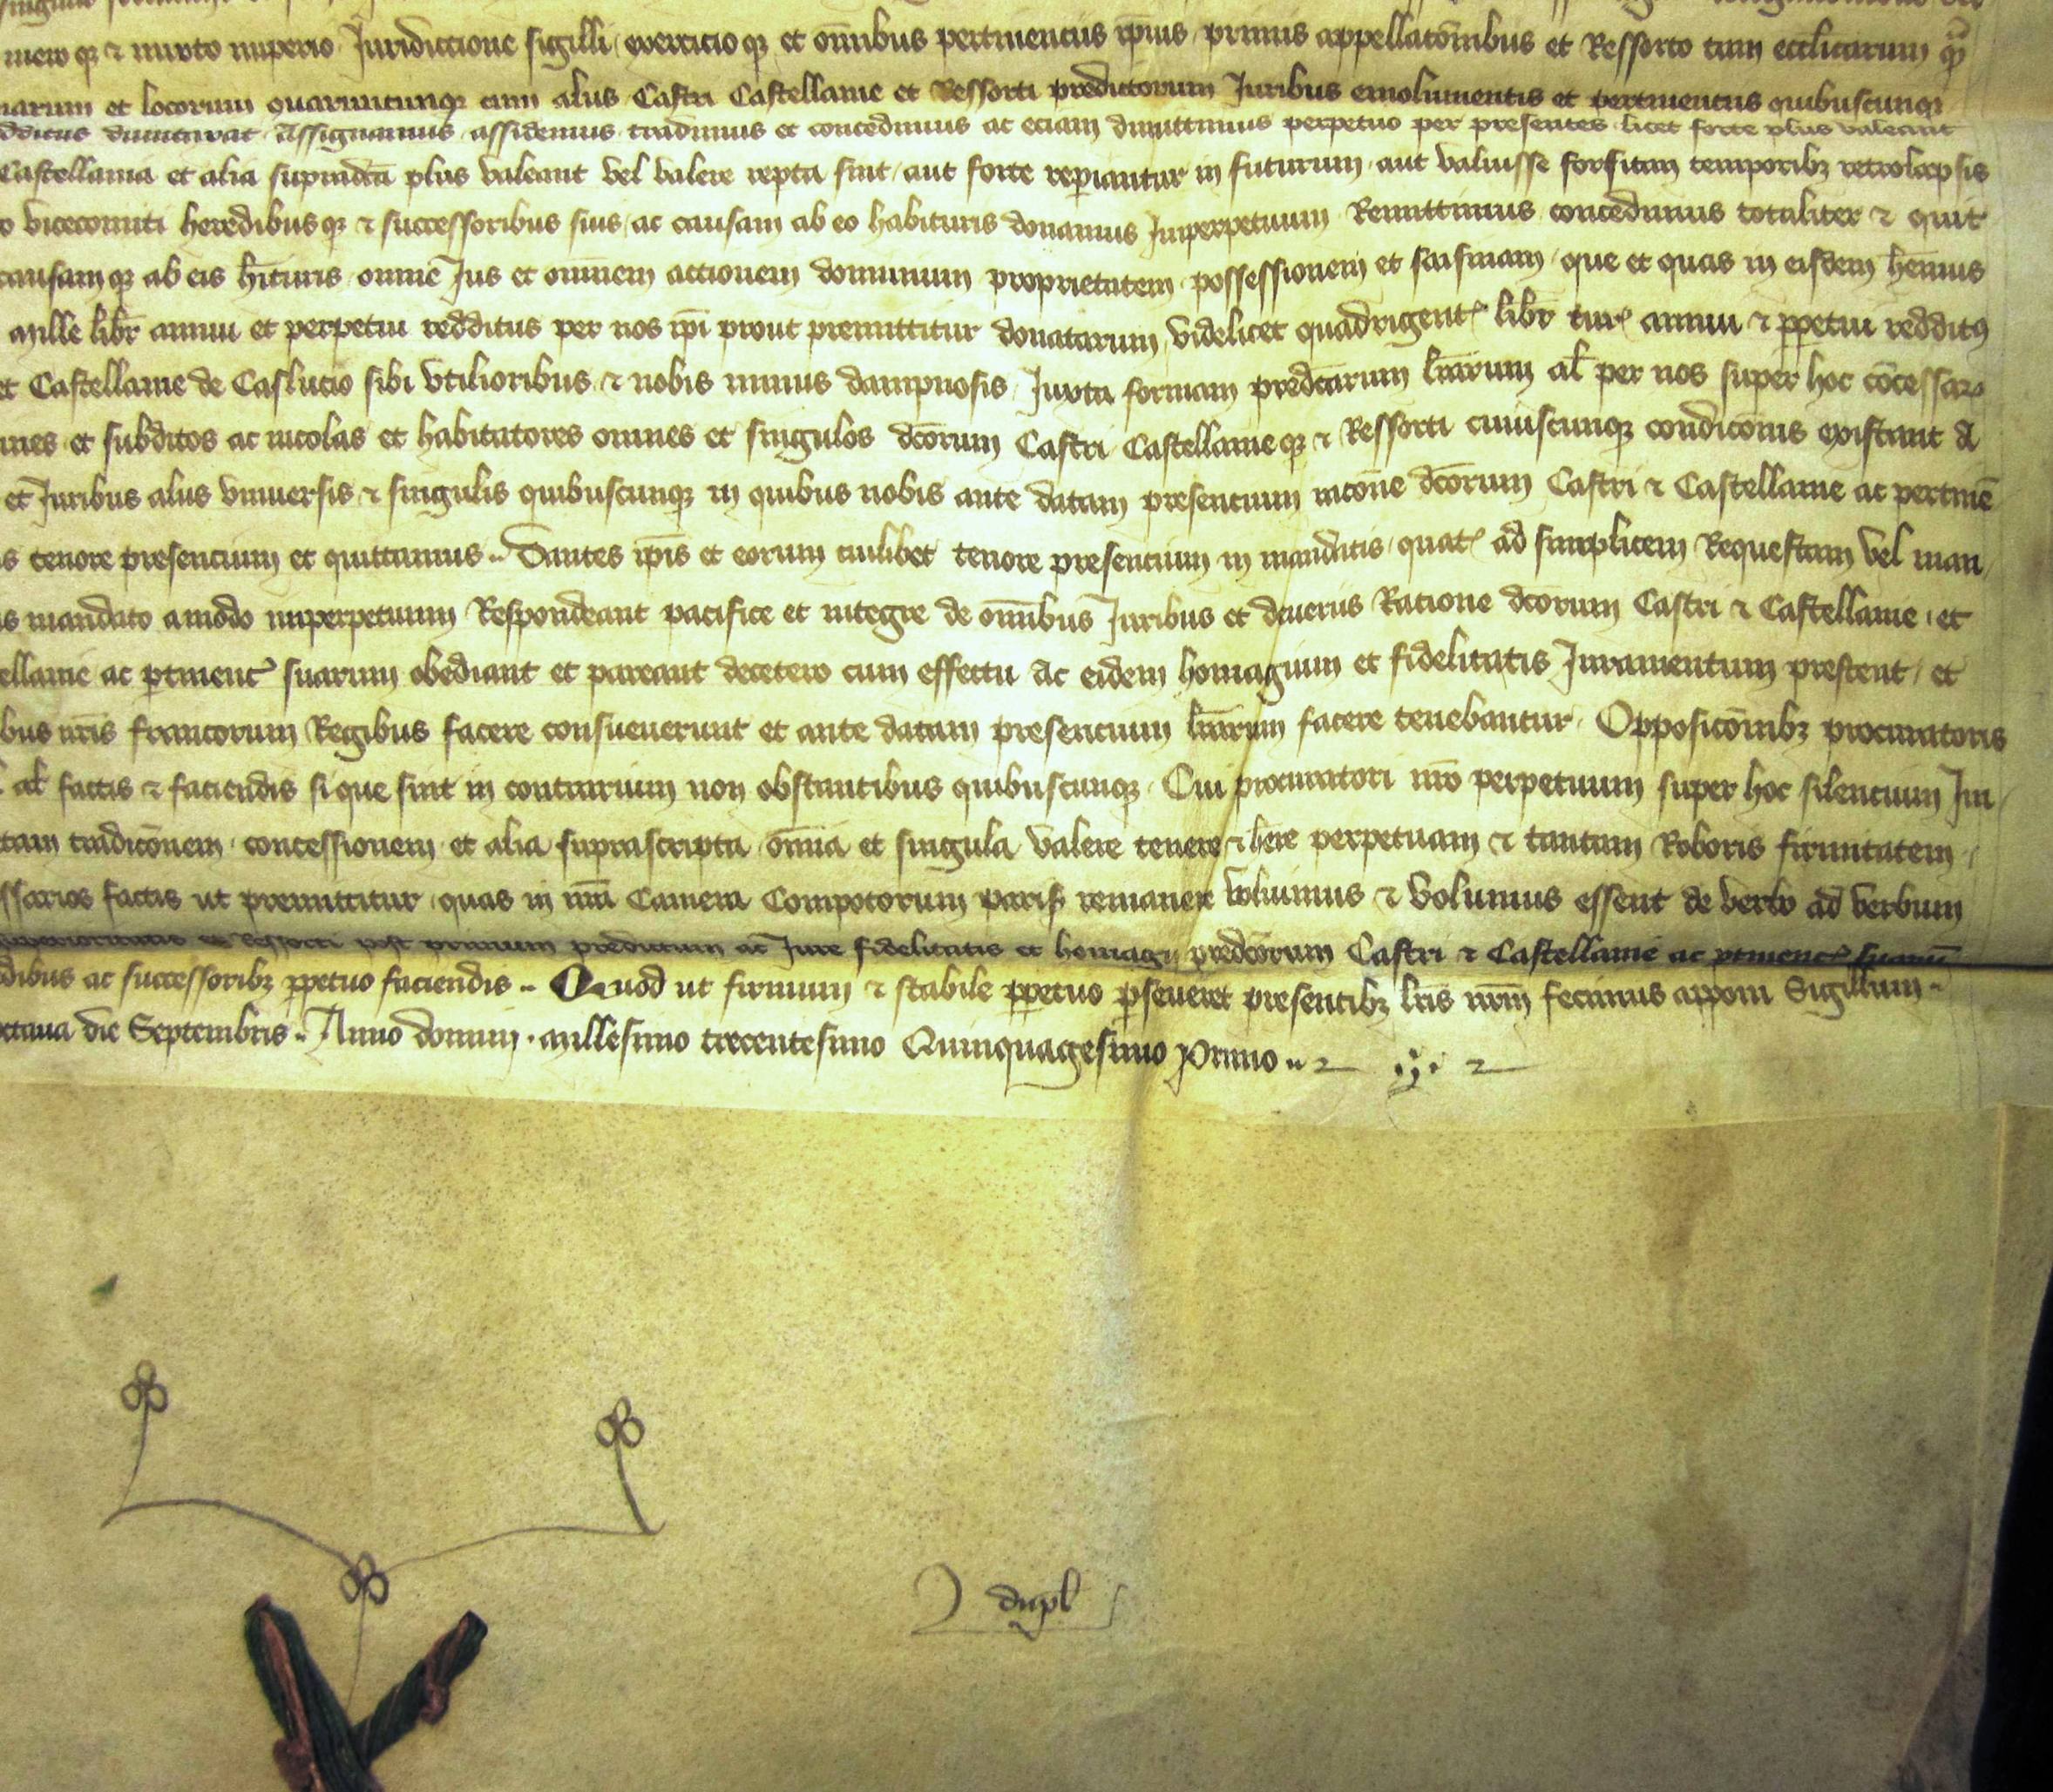 mero q₃ ⁊ mixto imperio Juridiccione sigilli exercicio q₃ et om̄ibus pertinenciis ip̄ius primis appellacōnibus et Ressorto tam eccl̄iarum q̄
et locorum quaruncunq₃ cum aliis Castri Castellanie et Ressorti predictorum Juribus emolumentis et pertinenciis quibuscunq₃
Assignamus assidemus tradimus et concedimus ac eciam dimittimus perpetuo per presentes licet forte plus valeant
Castellania et alia supradc̄a plus valeant vel valere rep̄ta sint aut forte rep̄iantur in futurum aut valuisse forsitan temporib₃ retrolapsis
vicecomiti heredibusq₃ ⁊ successoribus suis ac causam ab eo habituris donamus Imperpetuum Remittimus concedimus totaliter ⁊ quit
causamq₃ ab eis h̄ituris omne Jus et omnem accionem dominium proprietatem possessionem et saisinam que et quas in eisdem hēmus
mille libr̄ annui et perpetui redditus per nos ip̄i prout premittitur donatarum videlicet quadrigent libr̄ tur annui ⁊ ꝑpetui redditus
et Castellanie de Caslucio sibi vtilioribus ⁊ nobis minus dampnosis Juxta formam predc̄arum lr̄arum al̄ per nos super hoc cōcessar
et subditos ac incolas et habitatores omnes et singulos dc̄orum Castri Castellanieq₃ ⁊ Ressorti cuiuscunq₃ condicōnis existant A
et Juribus aliis vniuersis ⁊ singulis quibuscunq₃ in quibus nobis ante datam presencium racōne dc̄orum Castri ⁊ Castellanie ac pertinē
tenore presencium et quittamus Dantes ip̄is et eorum cuilibet tenore presencium in mandatis quat ad simplicem Requestam vel man
mandato amodo imperpetuum Respondeant pacifice et integre de om̄ibus Juribus et deueriis Racione dc̄orum Castri ⁊ Castellanie et
ellanie ac ꝑtinenc suarum obediant et pareant decetero cum effectu Ac eidem homagium et fidelitatis Juramentum prestent et
bus nr̄is francorum Regibus facere consueuerunt et ante datam presencium lr̄arum facere tenebantur Opposicōnib₃ procuratoris
al̄ factis ⁊ faciendis si que sint in contrarium non obstantibus quibuscunq₃ Cui procuratori nr̄o perpetuum super hoc silencium Im
tradicōnem concessionem et alia suprascripta om̄ia et singula valere tenere ⁊ hēre perpetuam ⁊ tantam Roboris firmitatem
ssarios factis ut premittitur quas in nr̄a Camera Compotorum paris remanere voluimus ⁊ volumus essent de verbo ad verbum
et Ressorti post primum predictum ac Jure fidelitatis et homagii predc̄orum Castri ⁊ Castellanie ac ꝑtinenc suarū
dibus ac successorib₃ ꝑpetuo faciendis Quod ut firmum ⁊ stabile ꝑpetuo ꝑseueret presentib₃ lr̄is nr̄m fecimus apponi Sigillum
die Septembris Anno domini millesimo trecentesimo Quinquagesimo Primo
dupl